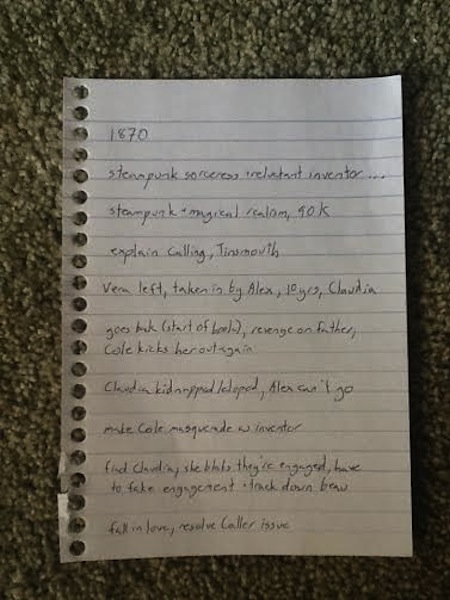 1870
steampunk sorceress + reluctant inventor...
steampunk + magical realism, 90K
explain Calling, Tinsmouth
Vera left, taken in by Alex, 10 yrs, Claudia
goes back (start of book), revenge on father,
Cole kicks her out again
Claudia kidnapped/eloped, Alex can't go
make Cole masquerade as inventor
find Claudia, she blabs they're engaged, have
to fake engagement + track down beau
fall in love, resolve Caller issue